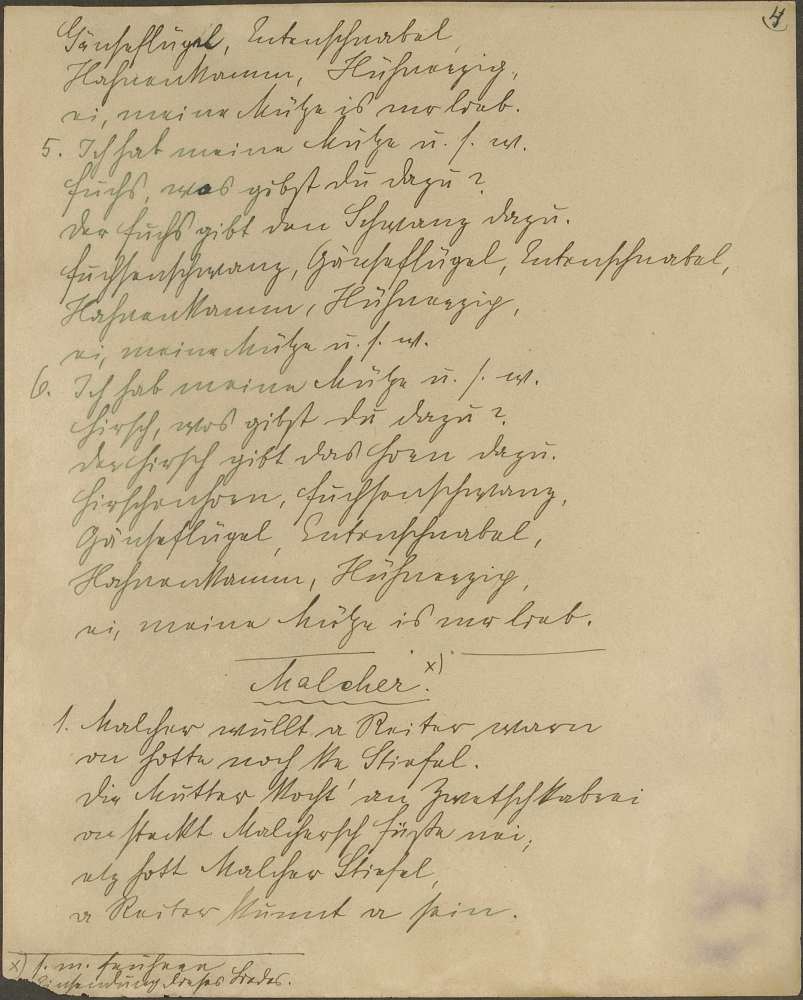 4
Gänseflügel, Entenschnabel,
Hahnenkamm, Hühnerzig,
ei, meine Mütze is mr lieb.
5. Ich hab meine Mütze u. s. w.
Fuchs, was gibst du dazu?
Der Fuchs gibt den Schwanz dazu.
Fuchsenschwanz, Gänseflügel, Entenschnabel,
Hahnenkamm, Hühnerzig,
ei, meine Mütze u. s. w.
6. Ich hab meine Mütze u. s. w.
Hirsch, was gibst du dazu?
Der Hirsch gibt das Horn dazu.
Hirschenhorn, Fuchsenschwanz,
Gänseflügel, Entenschnabel,
Hahnenkamm, Hühnerzig,
ei, meine Mütze is mr lieb.
Malcher. x)
1. Malcher wullt a Reiter warn
on hotte noch ke Stiefel.
Die Mutter kocht' an Zwetschkabrei
on steckt Malchersch Füße nei;
etz hott Malcher Stiefel,
a Reiter kunnt a sein.
x) s. m. frühere
Einsendung dieses Liedes.